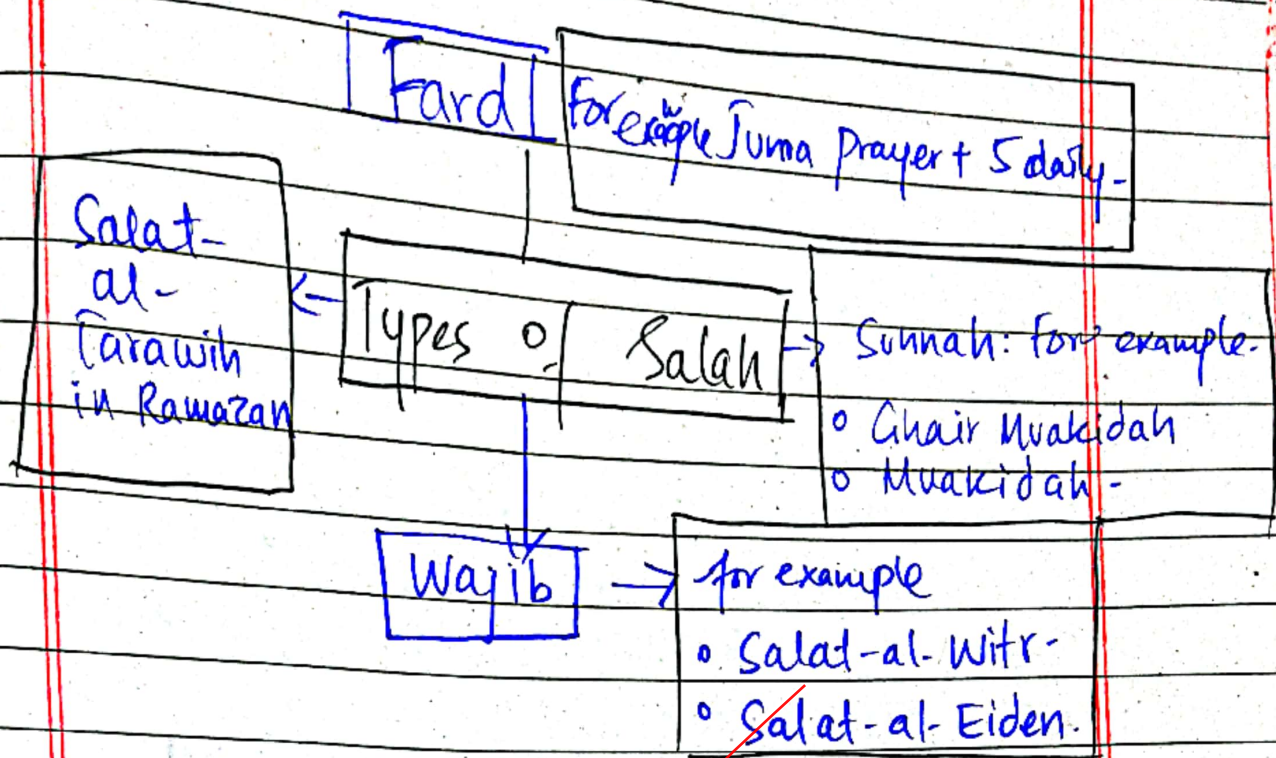 Fard
For example Juma Prayer + 5 daily-
Salat-
al-
Tarawih
in Ramazan
Types of Salah
Sunnah: for example.
Ghair Muakidah
Muakidah -
Wajib
for example
Salat-al-Witr-
Salat-al-Eiden.